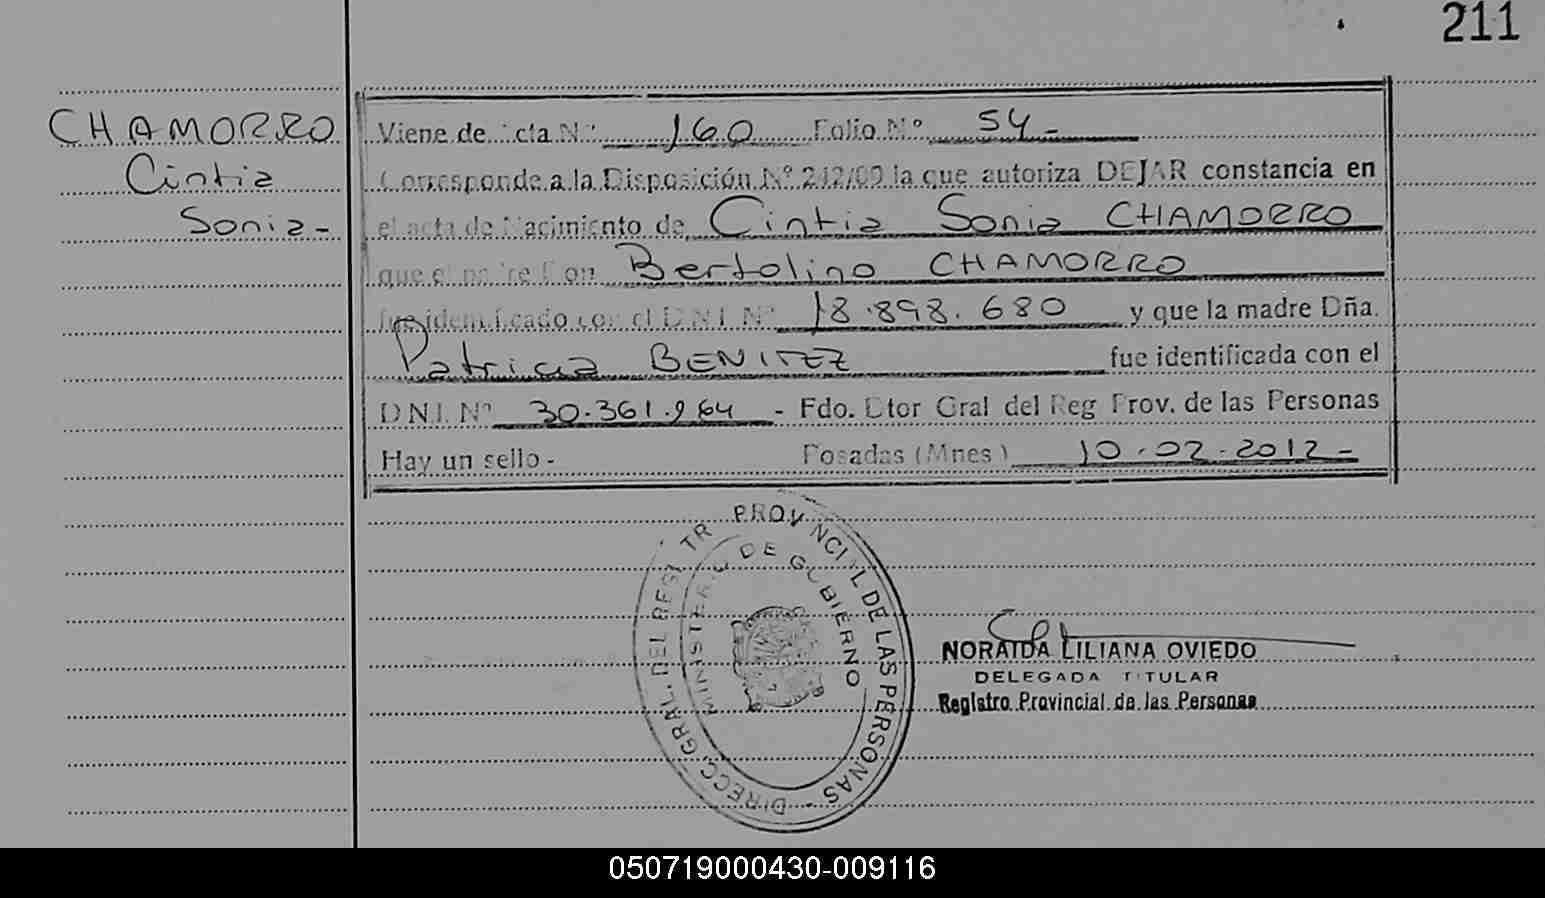 211
CHAMORRO
Cintia
Sonia-
Viene de Acta Nº 160 Folio Nº 54-
Corresponde a la Disposición Nº 242/09 la que autoriza DEJAR constancia en
el acta de Nacimiento de Cintia Sonia CHAMORRO
que el padre Don Bertolino CHAMORRO
fue identificado con el D N I Nº 18.898.680 y que la madre Dña.
Patricia BENITEZ fue identificada con el
D N I. Nº 30.361.964 - Fdo. Dtor Gral del Reg Prov. de las Personas
Hay un sello - Posadas (Mnes) 10-02-2012-
DIRECC. GRAL. DEL REGISTR PROVINCIAL DE LAS PERSONAS -
MINISTERIO DE GOBIERNO
NORAIDA LILIANA OVIEDO
DELEGADA TITULAR
Registro Provincial de las Personas
050719000430-009116